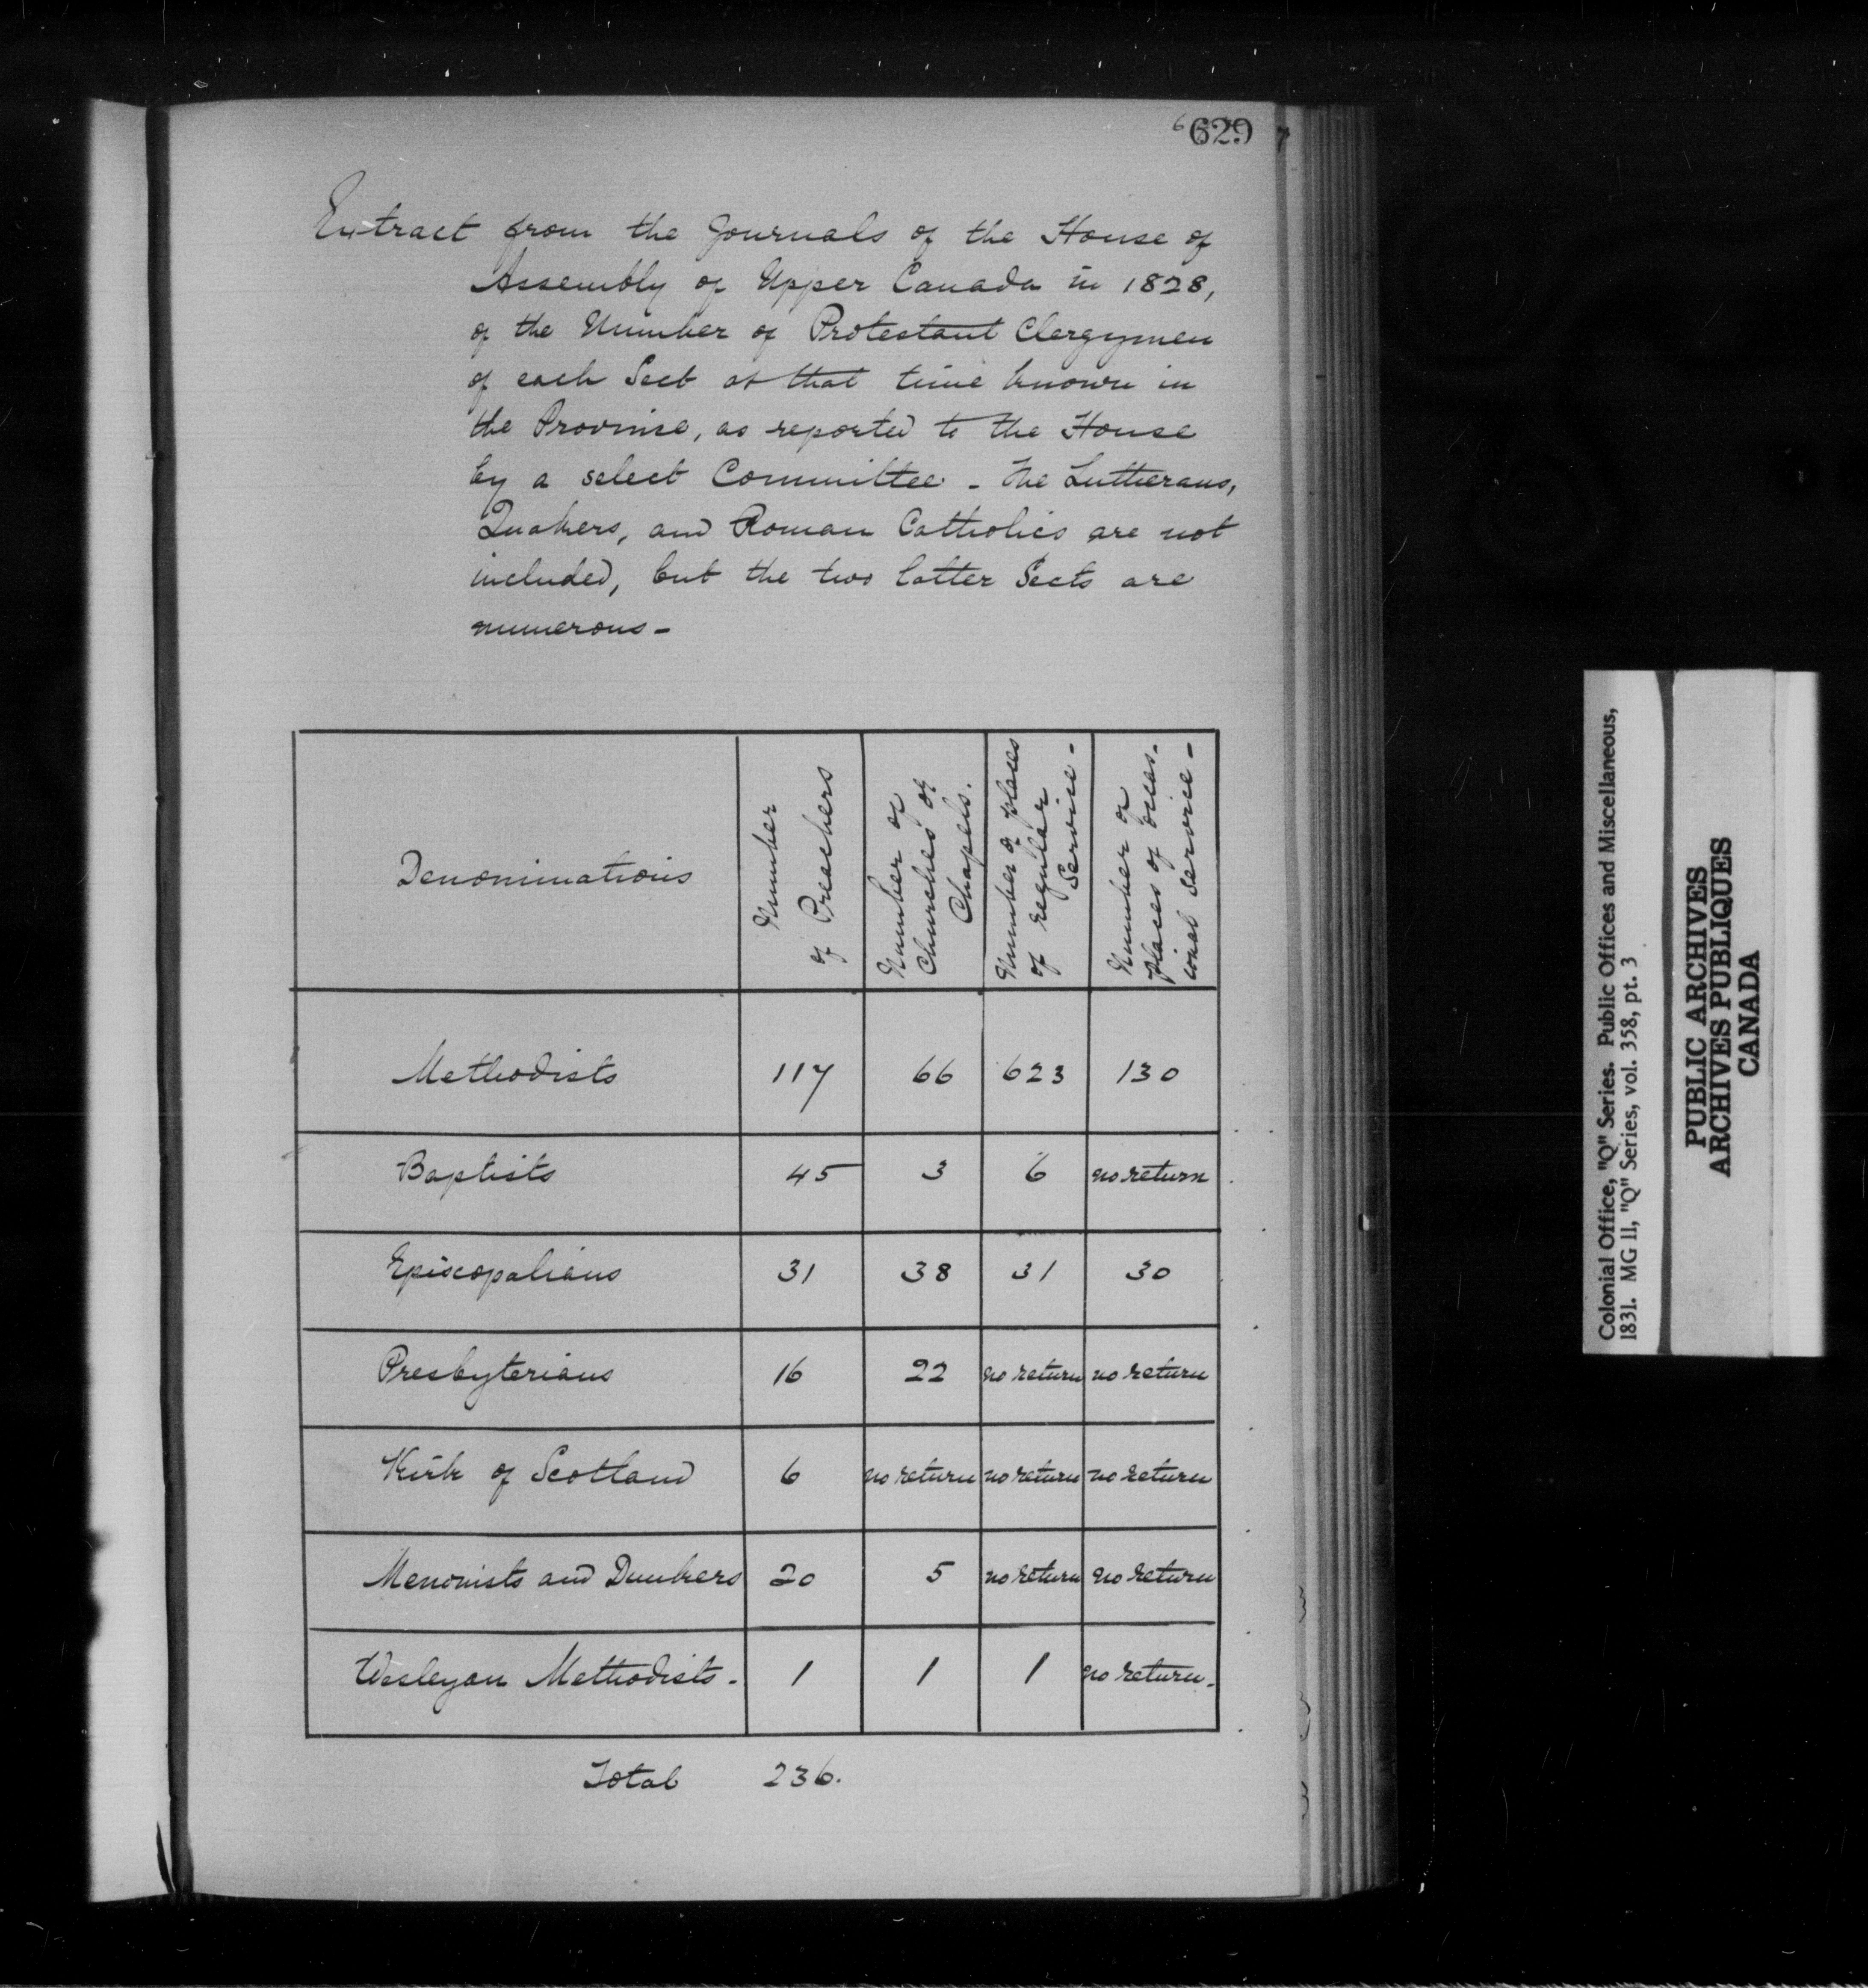 629
Extract from the Journals of the House of
Assembly of Upper Canada in 1828,
of the Number of Protestant Clergymen
of each Sect at that time known in
the Province, as reported to the House
by a select Committee - The Lutherans,
Quakers, and Roman Catholics are not
included, but the two latter Sects are
numerous -
Denominations
Number
of Preachers
Number of
Churches or
Chapels.
Number of places
of regular
Service -
Number of
places of occas-
ional Service -
Methodists 117 66 623 130
Baptists 45 3 6 no return
Episcopalians 31 38 31 30
Presbyterians 16 22 no return no return
Kirk of Scotland 6 no return no return no return
Menonists and Dunkers 20 5 no return no return
Wesleyan Methodists - 1 1 1 no return -
Total 236.
Colonial Office, "Q" Series. Public Offices and Miscellaneous,
1831. MG 11, "Q" Series, vol. 358, pt. 3
PUBLIC ARCHIVES
ARCHIVES PUBLIQUES
CANADA